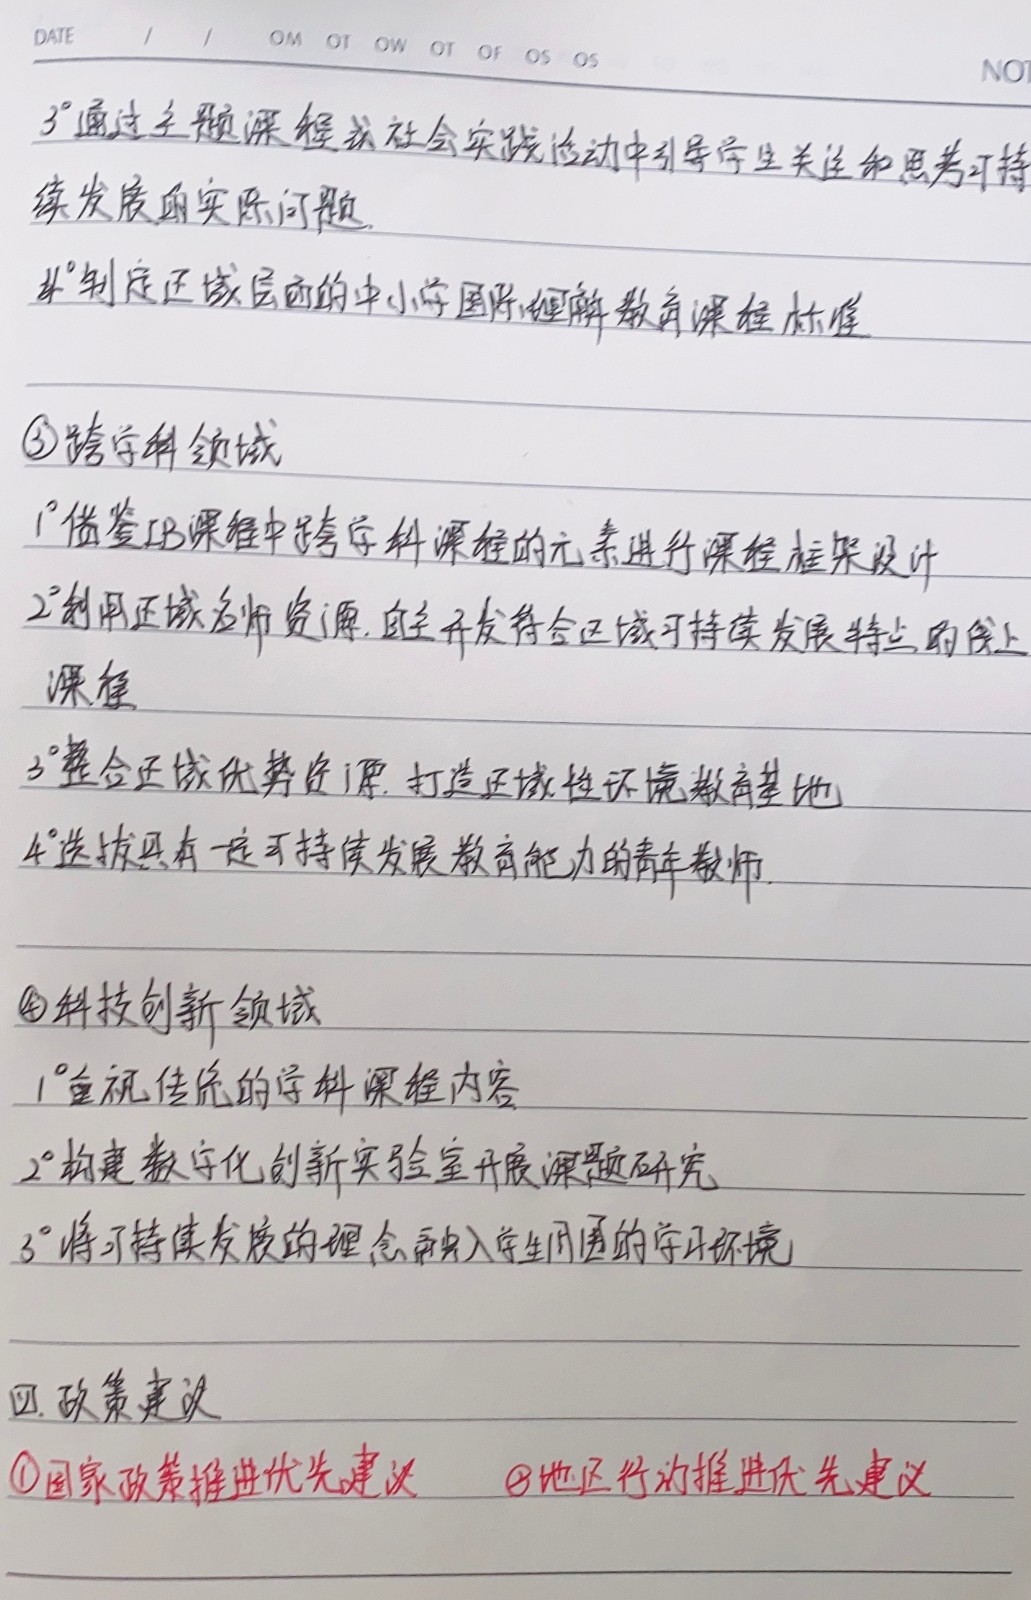 DATE / / OM OT OW OT OF OS OS
NOT
3°通过主题课程或社会实践活动中引导学生关注和思考可持
续发展的实际问题.
4°制定区域层面的中小学国际理解教育课程标准
③跨学科领域
1°借鉴IB课程中跨学科课程的元素进行课程框架设计
2°利用区域名师资源.自主开发符合区域可持续发展特点的线上
课程
3°整合区域优势资源.打造区域性环境教育基地
4°选拔具有一定可持续发展教育能力的青年教师.
④科技创新领域
1°重视传统的学科课程内容
2°构建数字化创新实验室开展课题研究
3°将可持续发展的理念融入学生周围的学习环境
四.政策建议
①国家政策推进优先建议 ②地区行动推进优先建议